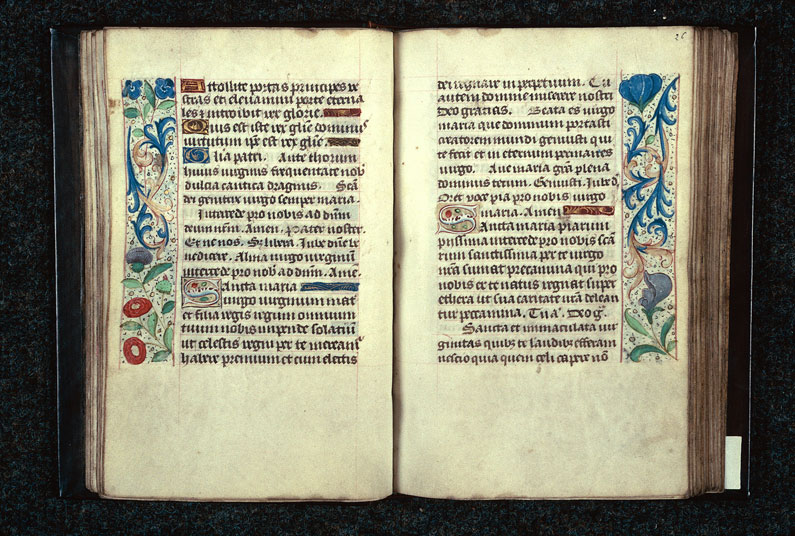 Attollite portas principes ve
stras et eleuamini porte eterna
les & introibit rex glorie.
Quis est iste rex glie dominus
uirtutum ips est rex glie.
Glia patri. Ante thorum
huius uirginis frequentate nob
dulcia cantica dragmis. Scā
dei genitrix uirgo semper maria.
Intercede pro nobis ad dūm
deum nrm. Amen. Pater noster
Et ne nos. Sz libera. Iube dūe be
nedicere. Alma uirgo uirginū
intercede pro nob ad dūm. Amē.
Sancta maria
uirgo uirginum mat
et filia regis regum omnium
tuum nobis impende solatiū
ut celestis regni per te mereami
habere premium et cum electis
26
dei regnare in perpetuum. Tu
autem domine miserere nostri
Deo gratias. Beata es uirgo
maria que dominum portasti
creatorem mundi genuisti qui
te fecit et in eternum permanes
uirgo. Aue maria grā plena
dominus tecum. Genuisti. Iube d.
Oret uoce pia pro nobis uirgo
maria. Amen
Sancta maria piarum
piissima intercede pro nobis scā
rum sanctissima per te uirgo
nrā sumat precamina qui pro
nobis ex te natus regnat super
ethera ut sua caritate nrā delean
tur peccamina. Tu aū. Deo g.
Sancta et immaculata uir
ginitas quibz te laudibus efferam
nescio quia quem celi capere nō